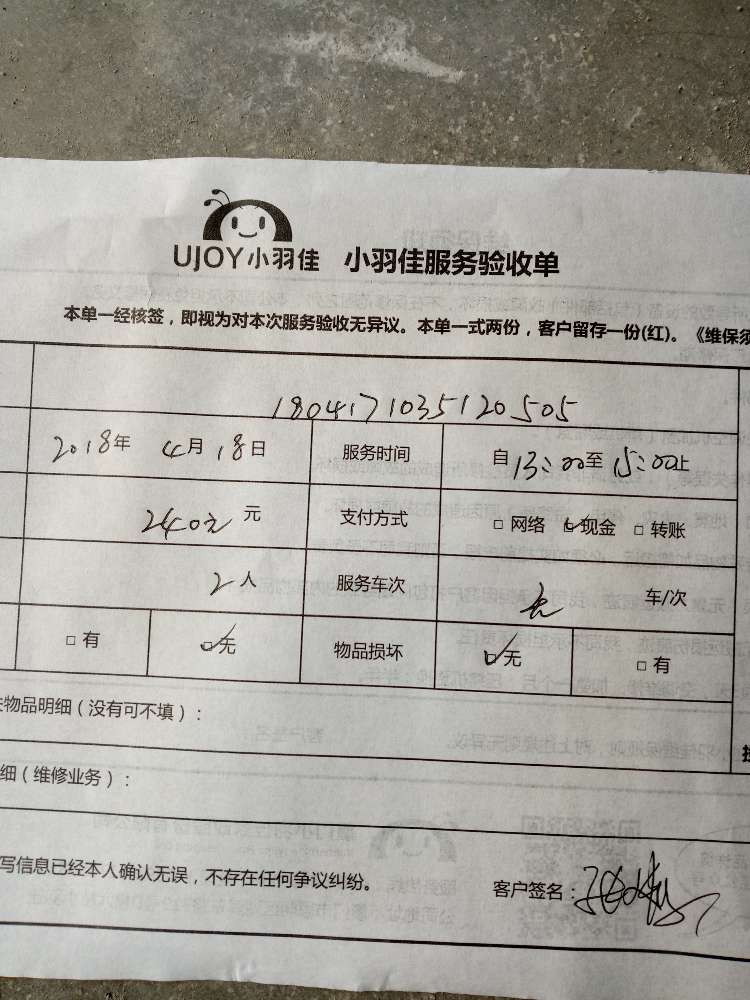 UJOY小羽佳 小羽佳服务验收单
本单一经核签，即视为对本次服务验收无异议。本单一式两份，客户留存一份(红)。《维保须
180417103512050​5
2018年 4月18日 服务时间 自13:00至15:00止
240元 元 支付方式 □ 网络 ☑ 现金 □ 转账
2人 服务车次 无 车/次
□ 有 ☑无 物品损坏 ☑无 □ 有
物品明细（没有可不填）：
细（维修业务）：
写信息已经本人确认无误，不存在任何争议纠纷。 客户签名：